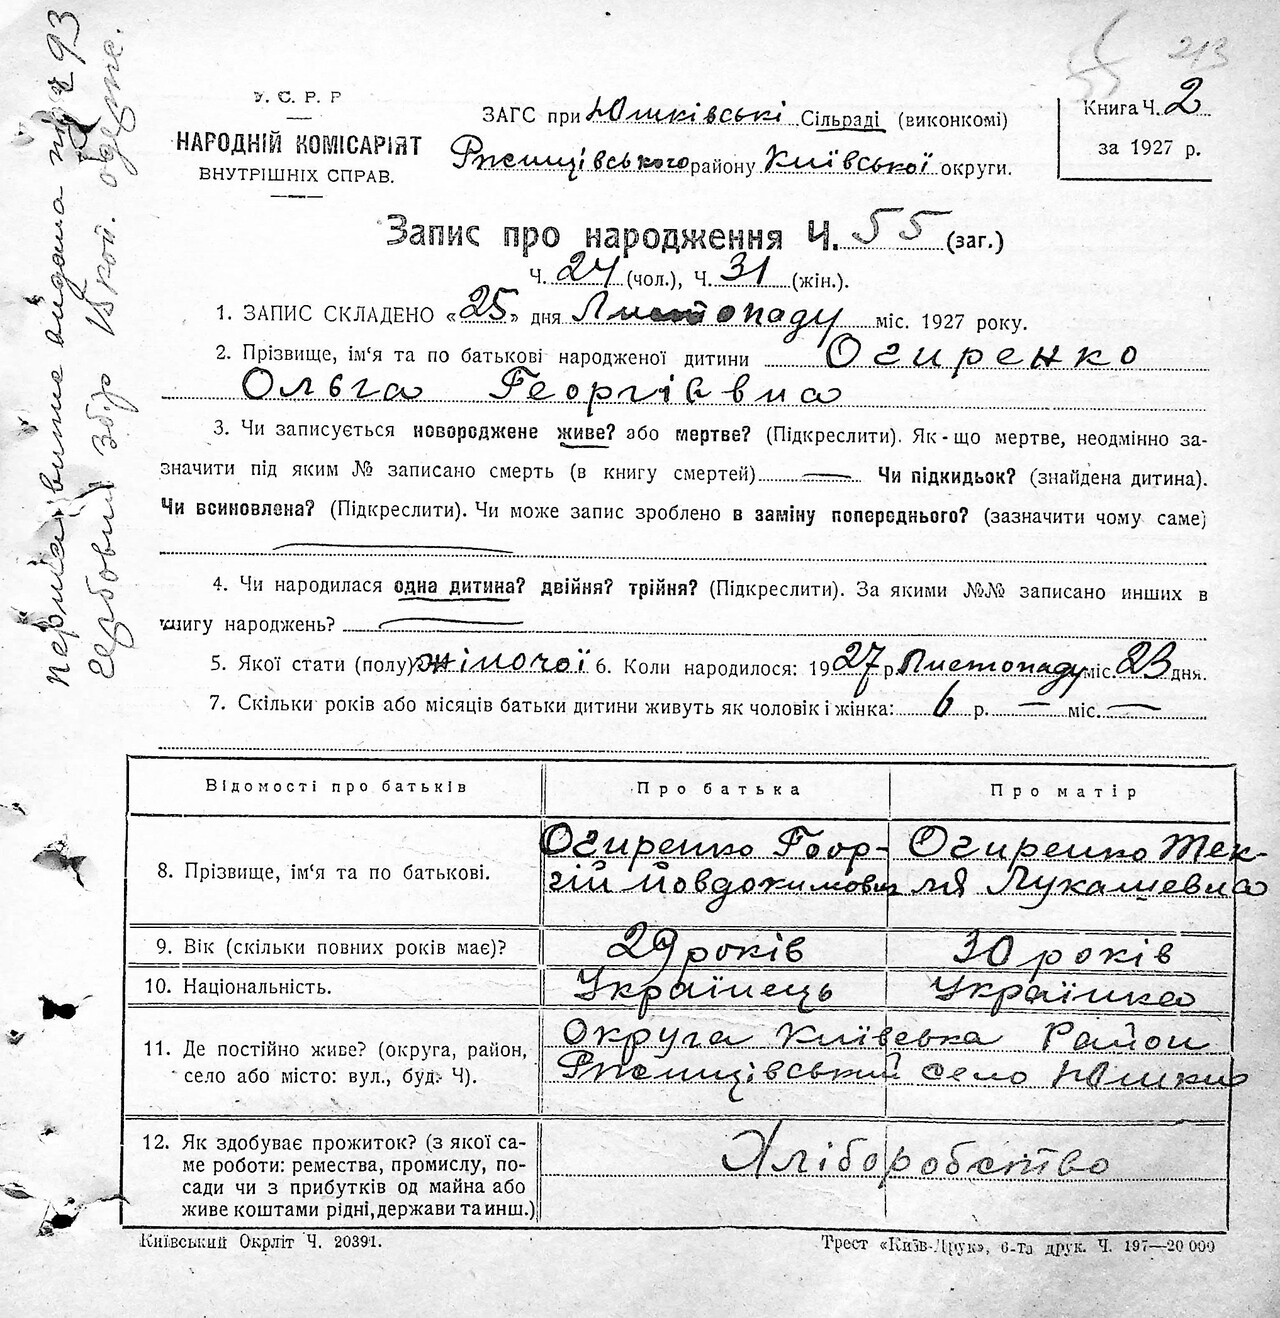 55 213
У. С. Р. Р
НАРОДНІЙ КОМІСАРІЯТ
ВНУТРІШНІХ СПРАВ.
ЗАГС при Юшківські Сільраді (виконкомі)
Ржищівського району Київської округи.
Книга Ч. 2
за 1927 р.
Запис про народження Ч. 55 (заг.)
Ч. 24 (чол.), Ч. 31 (жін.).
1. ЗАПИС СКЛАДЕНО «25» дня Листопаду міс. 1927 року.
2. Прізвище, ім‘я та по батькові народженої дитини Огиренко
Ольга Георгіївна
3. Чи записується новороджене живе? або мертве? (Підкреслити). Як-що мертве, неодмінно за-
значити під яким № записано смерть (в книгу смертей) — Чи підкидьок? (знайдена дитина).
Чи всиновлена? (Підкреслити). Чи може запис зроблено в заміну попереднього? (зазначити чому саме)
4. Чи народилася одна дитина? двійня? трійня? (Підкреслити). За якими №№ записано инших в
книгу народжень? —
5. Якої стати (полу) жіночої 6. Коли народилося: 1927 р. Листопаду міс. 23 дня.
7. Скільки років або місяців батьки дитини живуть як чоловік і жінка: 6 р. — міс. —
Відомості про батьків Про батька Про матір
8. Прізвище, ім‘я та по батькові.
Огиренко Геор-
гій Йовдокимович
Огиренко Тек-
ля Лукашевна
9. Вік (скільки повних років має)? 29 років 30 років
10. Національність. Українець Українка
11. Де постійно живе? (округа, район,
село або місто: вул., буд. Ч).
Округа Київська Район
Ржищівський село Юшки
12. Як здобуває прожиток? (з якої са-
ме роботи: ремества, промислу, по-
сади чи з прибутків од майна або
живе коштами рідні, держави та инш.)
Хліборобство
Київський Окрліт Ч. 20391.
Трест «Київ-Друк», 6-та друк. Ч. 197—20 000
видана 93
збір коп.